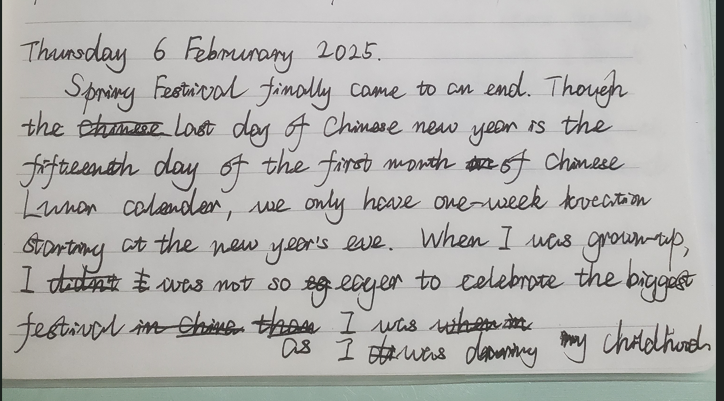 Thursday 6 Februnary 2025.
Spring Festival finally came to an end. Though
the Chinese last day of Chinese new year is the
fifteenth day of the first month of Chinese
Lunar calender, we only have one-week
starting at the new year's eve. When I was grown-up,
I didn't was not so eager to celebrate the biggest
festival in China than I was when in
as I was during my childhood